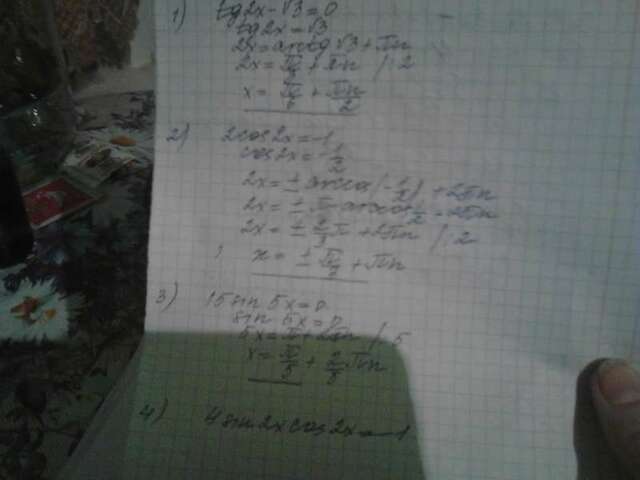 1) tg2x - √3 = 0
tg2x = √3
2x = arctg √3 + πn
2x = π/3 + πn / 2
x = π/6 + πn/2
2) 2cos2x = -1
cos2x = -1/2
2x = ± arccos(-1/2) + 2πn
2x = ± π - arccos 1/2 + 2πn
2x = ± 2/3 π + 2πn / 2
x = ± π/3 + πn
3) 15sin 5x = 0
sin 5x = 0
5x = π + 2πn / 5
x = π/5 + 2/5 πn
4) 4sin2xcos2x = 1